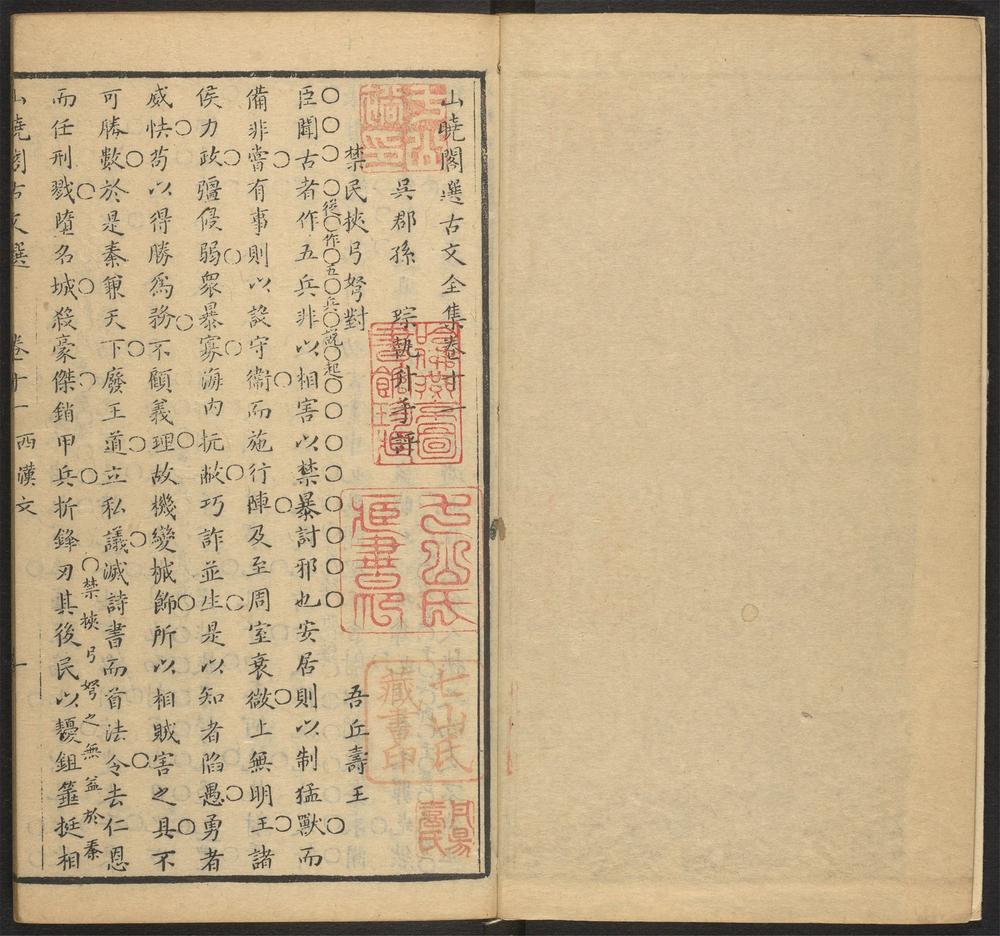 山曉閣選古文全集卷十一
吳郡孫　琮執升手評
禁民挾弓弩對　吾丘壽王
從作五兵說起
臣聞古者作五兵非以相害以禁暴討邪也安居則以制猛獸而
備非常有事則以設守衞而施行陣及至周室衰微上無明王諸
侯力政彊侵弱衆暴寡海内抏敝巧詐並生是以知者陷愚勇者
威怯苟以得勝爲務不顧義理故機變械飾所以相賊害之具不
可勝數於是秦兼天下廢王道立私議滅詩書而首法令去仁恩
禁挾弓弩之無益於秦
而任刑戮墮名城殺豪傑銷甲兵折鋒刃其後民以耰鉏箠挺相
山曉閣古文選　卷十一　西漢文　一
七山氏
藏書印